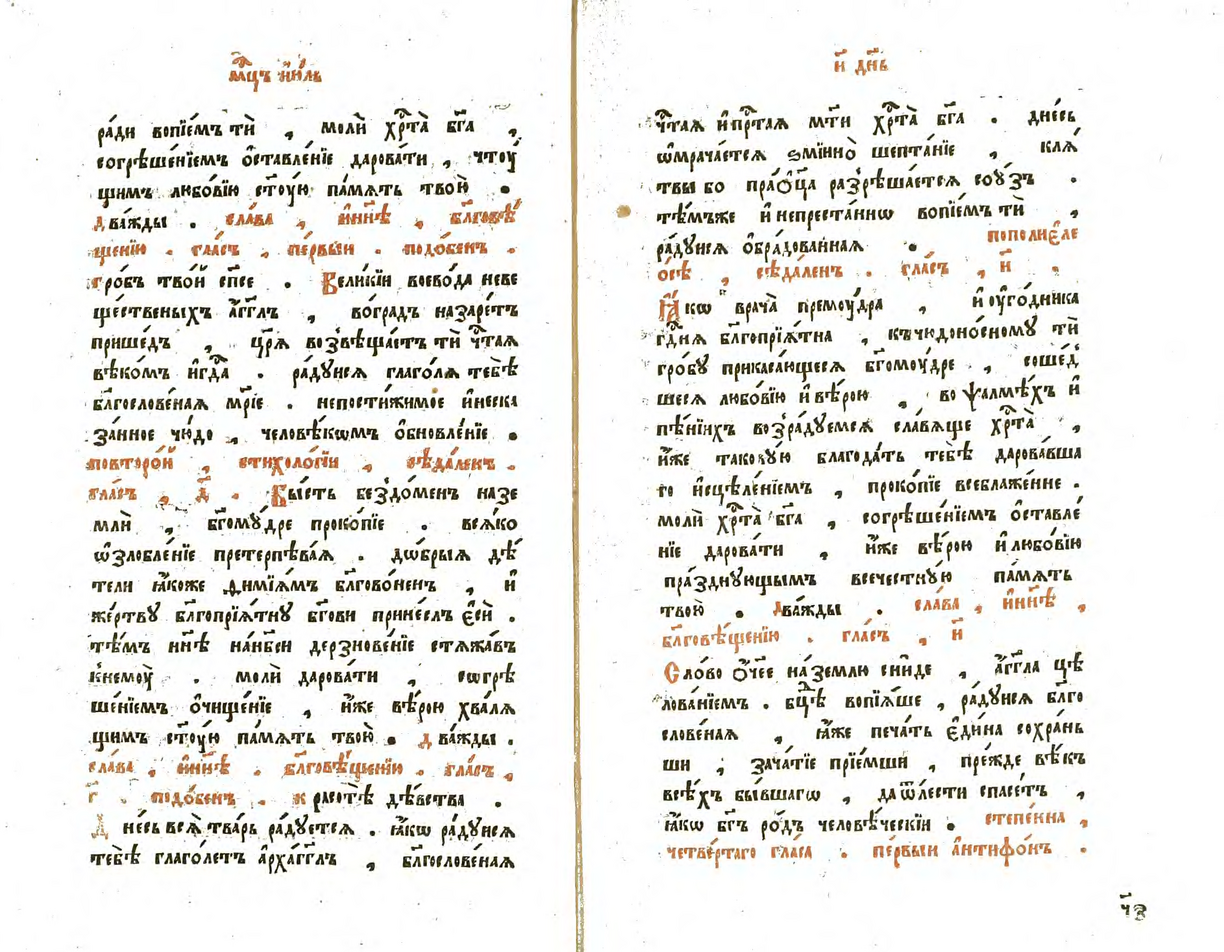 мцⷭ҇ъ и҆ю́ль
ра́ди вопїе́мъ тѝ , молѝ хрⷭ҇та̀ бг҃а ,
согрѣше́нїемъ ѡ҆ставле́нїе дарова́ти , чтоу́
щимъ любо́вїю ст҃ꙋ́ю па́мѧть твою̀ .
два́жды . сла́ва , и҆ н҃нѣ , бл҃говѣ́
щенїю . гла́съ , пе́рвыи . подо́бенъ .
гро́бъ тво́й сп҃се . Вели́кїи воево́да неве
ще́ственыхъ а҆́гг҃лъ , во гра́дъ назаре́тъ
прише́дъ , цр҃ѧ̀ возвѣща́етъ тѝ чⷭ҇таѧ
вѣко́мъ и҆ гдⷭ҇а . ра́дꙋисѧ глаго́лѧ тебѣ̀
бл҃гослове́наѧ мр҃і́е . непостижи́мое и҆ неска
за́нное чю́до , человѣ́кѡмъ ѡ҆бновле́нїе .
по второ́й , стихоло́гїи , сѣда́ленъ .
гла́съ , д҃ . Бы́сть бездо́менъ на зе
млѝ , бг҃омꙋ́дре проко́пїе . всѧ́ко
ѡ҆злобле́нїе претерпѣва́ѧ . дѡ́брыѧ дѣ́
тели ꙗ҆́коже ѳимїѧ́мъ бл҃гово́ненъ , и҆
же́ртвꙋ бл҃гопрїѧ́тнꙋ бг҃ови прине́слъ є҆сѝ .
тѣ́мъ н҃нѣ на нб҃си дерзнове́нїе стѧжа́въ
к немоу̀ . молѝ дарова́ти , согрѣ
ше́нїемъ ѡ҆чище́нїе , и҆́же вѣ́рою хва́лѧ
щимъ ст҃ꙋ́ю па́мѧть твою̀ . два́жды .
сла́ва , и҆ н҃нѣ . бл҃говѣ́щенїю . гла́съ ,
г҃ . подо́бенъ . красотѣ̀ дѣ́вства .
Дне́сь всѧ̀ тва́рь ра́дꙋетсѧ . ꙗ҆́кѡ ра́дꙋисѧ
тебѣ̀ глаго́летъ а҆рха́гг҃лъ , бл҃гослове́наѧ
и҃ дн҃ь
чⷭ҇таѧ и҆ прⷭ҇таѧ мт҃и хрⷭ҇та̀ бг҃а . дне́сь
ѡ҆мрача́етсѧ ѕмїи́но шепта́нїе , клѧ́
твы бо пра́ѻц҃а разрѣша́етсѧ соу́зъ .
тѣ́мъже и҆ непреста́ннѡ вопїе́мъ тѝ ,
ра́дꙋисѧ ѡ҆бра́дованнаѧ . по полиеле
о́сѣ , сѣда́ленъ . гла́съ , и҃ .
Ꙗ҆́кѡ врача̀ премоу́дра , и҆ оу҆го́дника
гдⷭ҇нѧ бл҃гопрїѧ́тна , къ чюдоно́сномꙋ тѝ
гро́бꙋ прикаса́ющесѧ бг҃омоу́дре , соше́д
шесѧ любо́вїю и҆ вѣ́рою , во ѱалмѣ́хъ и҆
пѣ́нїихъ возра́дꙋемсѧ сла́вѧще хрⷭ҇та̀ ,
и҆́же такову́ю благода́ть тебѣ̀ дарова́вша
го и҆сцѣле́нїемъ , проко́пїе всеблаже́нне .
молѝ хрⷭ҇та̀ бг҃а , согрѣше́нїемъ ѡ҆ставле́
нїе дарова́ти , и҆́же вѣ́рою и҆ любо́вїю
пра́зднꙋющымъ всечестнꙋ́ю па́мѧть
твою̀ . два́жды . сла́ва , и҆ н҃нѣ ,
бл҃говѣ́щенїю . гла́съ , и҃
Сло́во ѻ҆́ч҃ее на зе́млю сни́де , а҆́гг҃ла цѣ
лова́нїемъ . бцⷣѣ вопїѧ́ше , ра́дꙋисѧ бл҃го
слове́наѧ , ꙗ҆́же печа́ть є҆ди́на сохра́нь
ши , зача́тїе прїе́мши , пре́жде вѣ́къ
всѣ́хъ бы́вшагѡ , да ѿ ле́сти спасе́тъ ,
ꙗ҆́кѡ бг҃ъ ро́дъ человѣ́ческїи . степе́нна ,
четве́ртаго гла́са . пе́рвыи а҆нтифо́нъ .
чз҃